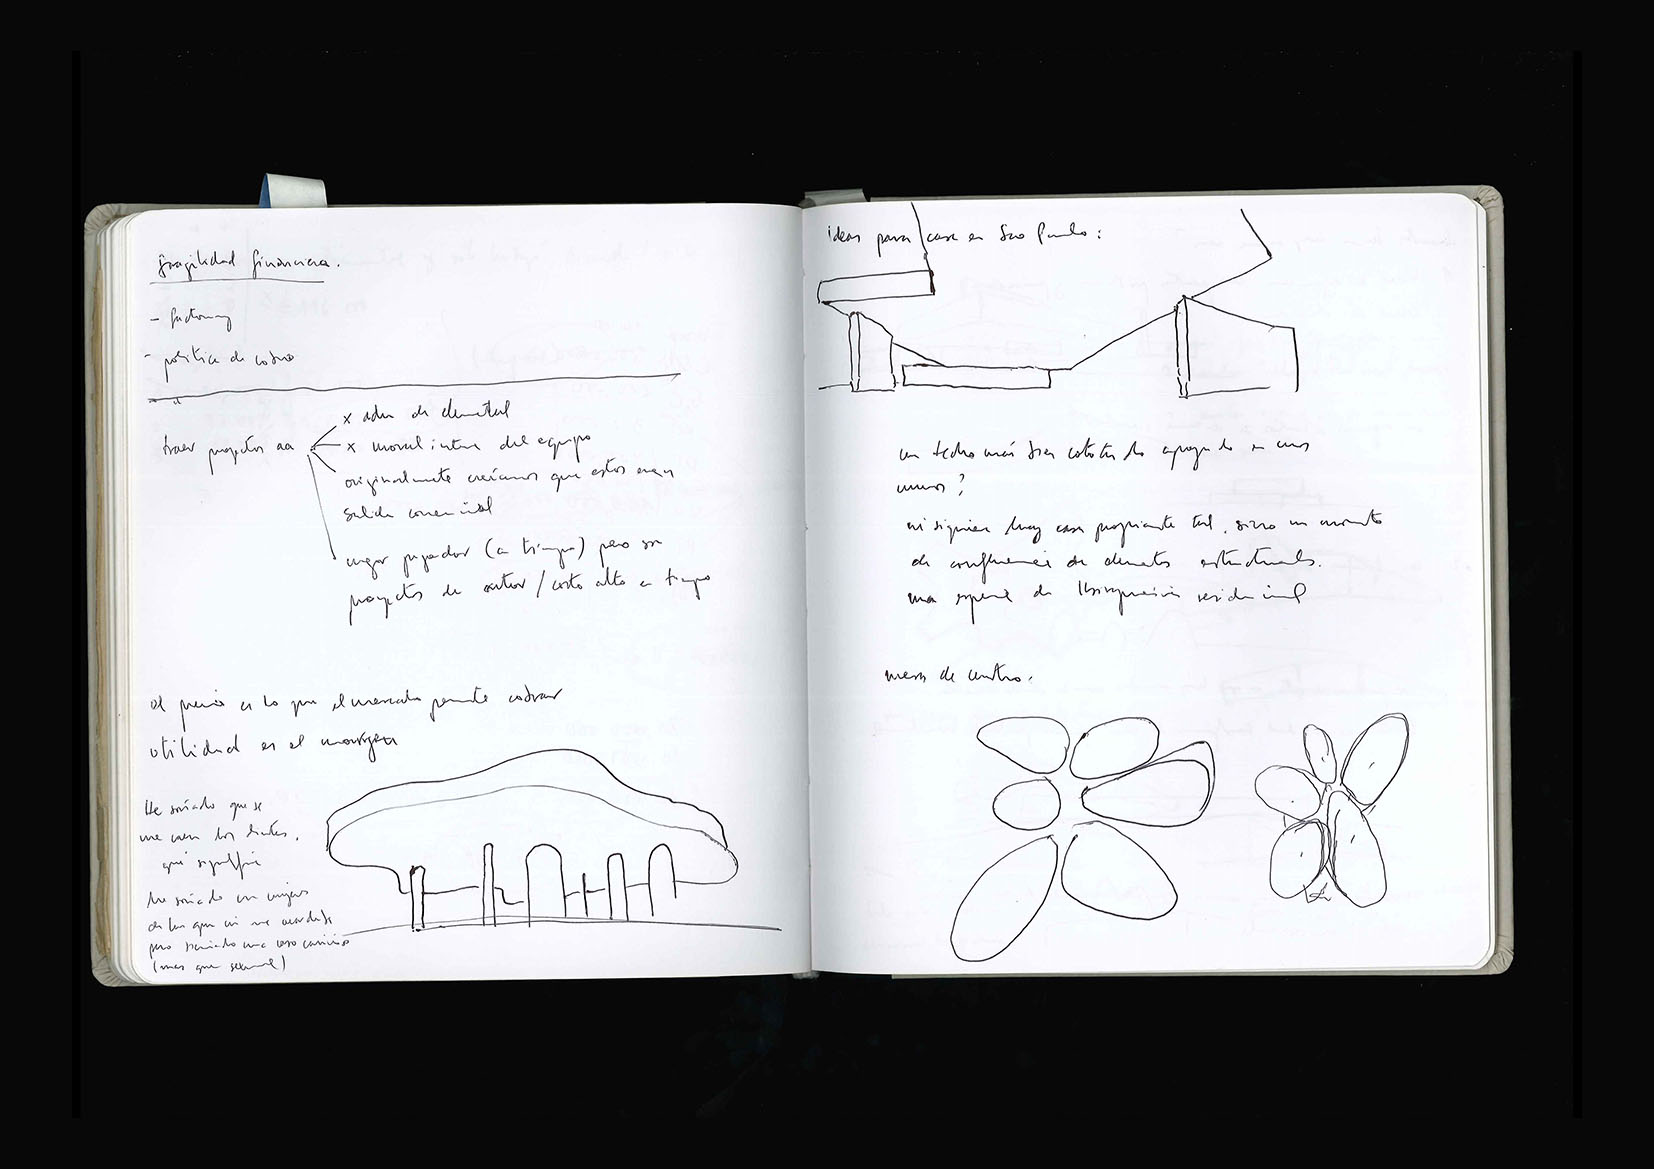 fragilidad financiera.
- factoring
- política de cobro
traer proyectos aa
x adn de elemental
x moral interna del equipo
originalmente creíamos que estos eran
salida comercial
mejor pagador (a tiempo) pero son
proyectos de autor / costo alto en tiempo
el precio es lo que el mercado permite cobrar
utilidad es el margen
He soñado que se
me caen los dientes.
qué significa
he soñado con mujeres
en las que ni me
pero
(más que sexual)
ideas para casa en Sao Paulo:
un techo más bien apoyado en unos
muros?
ni siquiera hay casa propiamente tal, sino un momento
de confluencia de elementos estructurales.
una especie de residencial
mesa de centro.